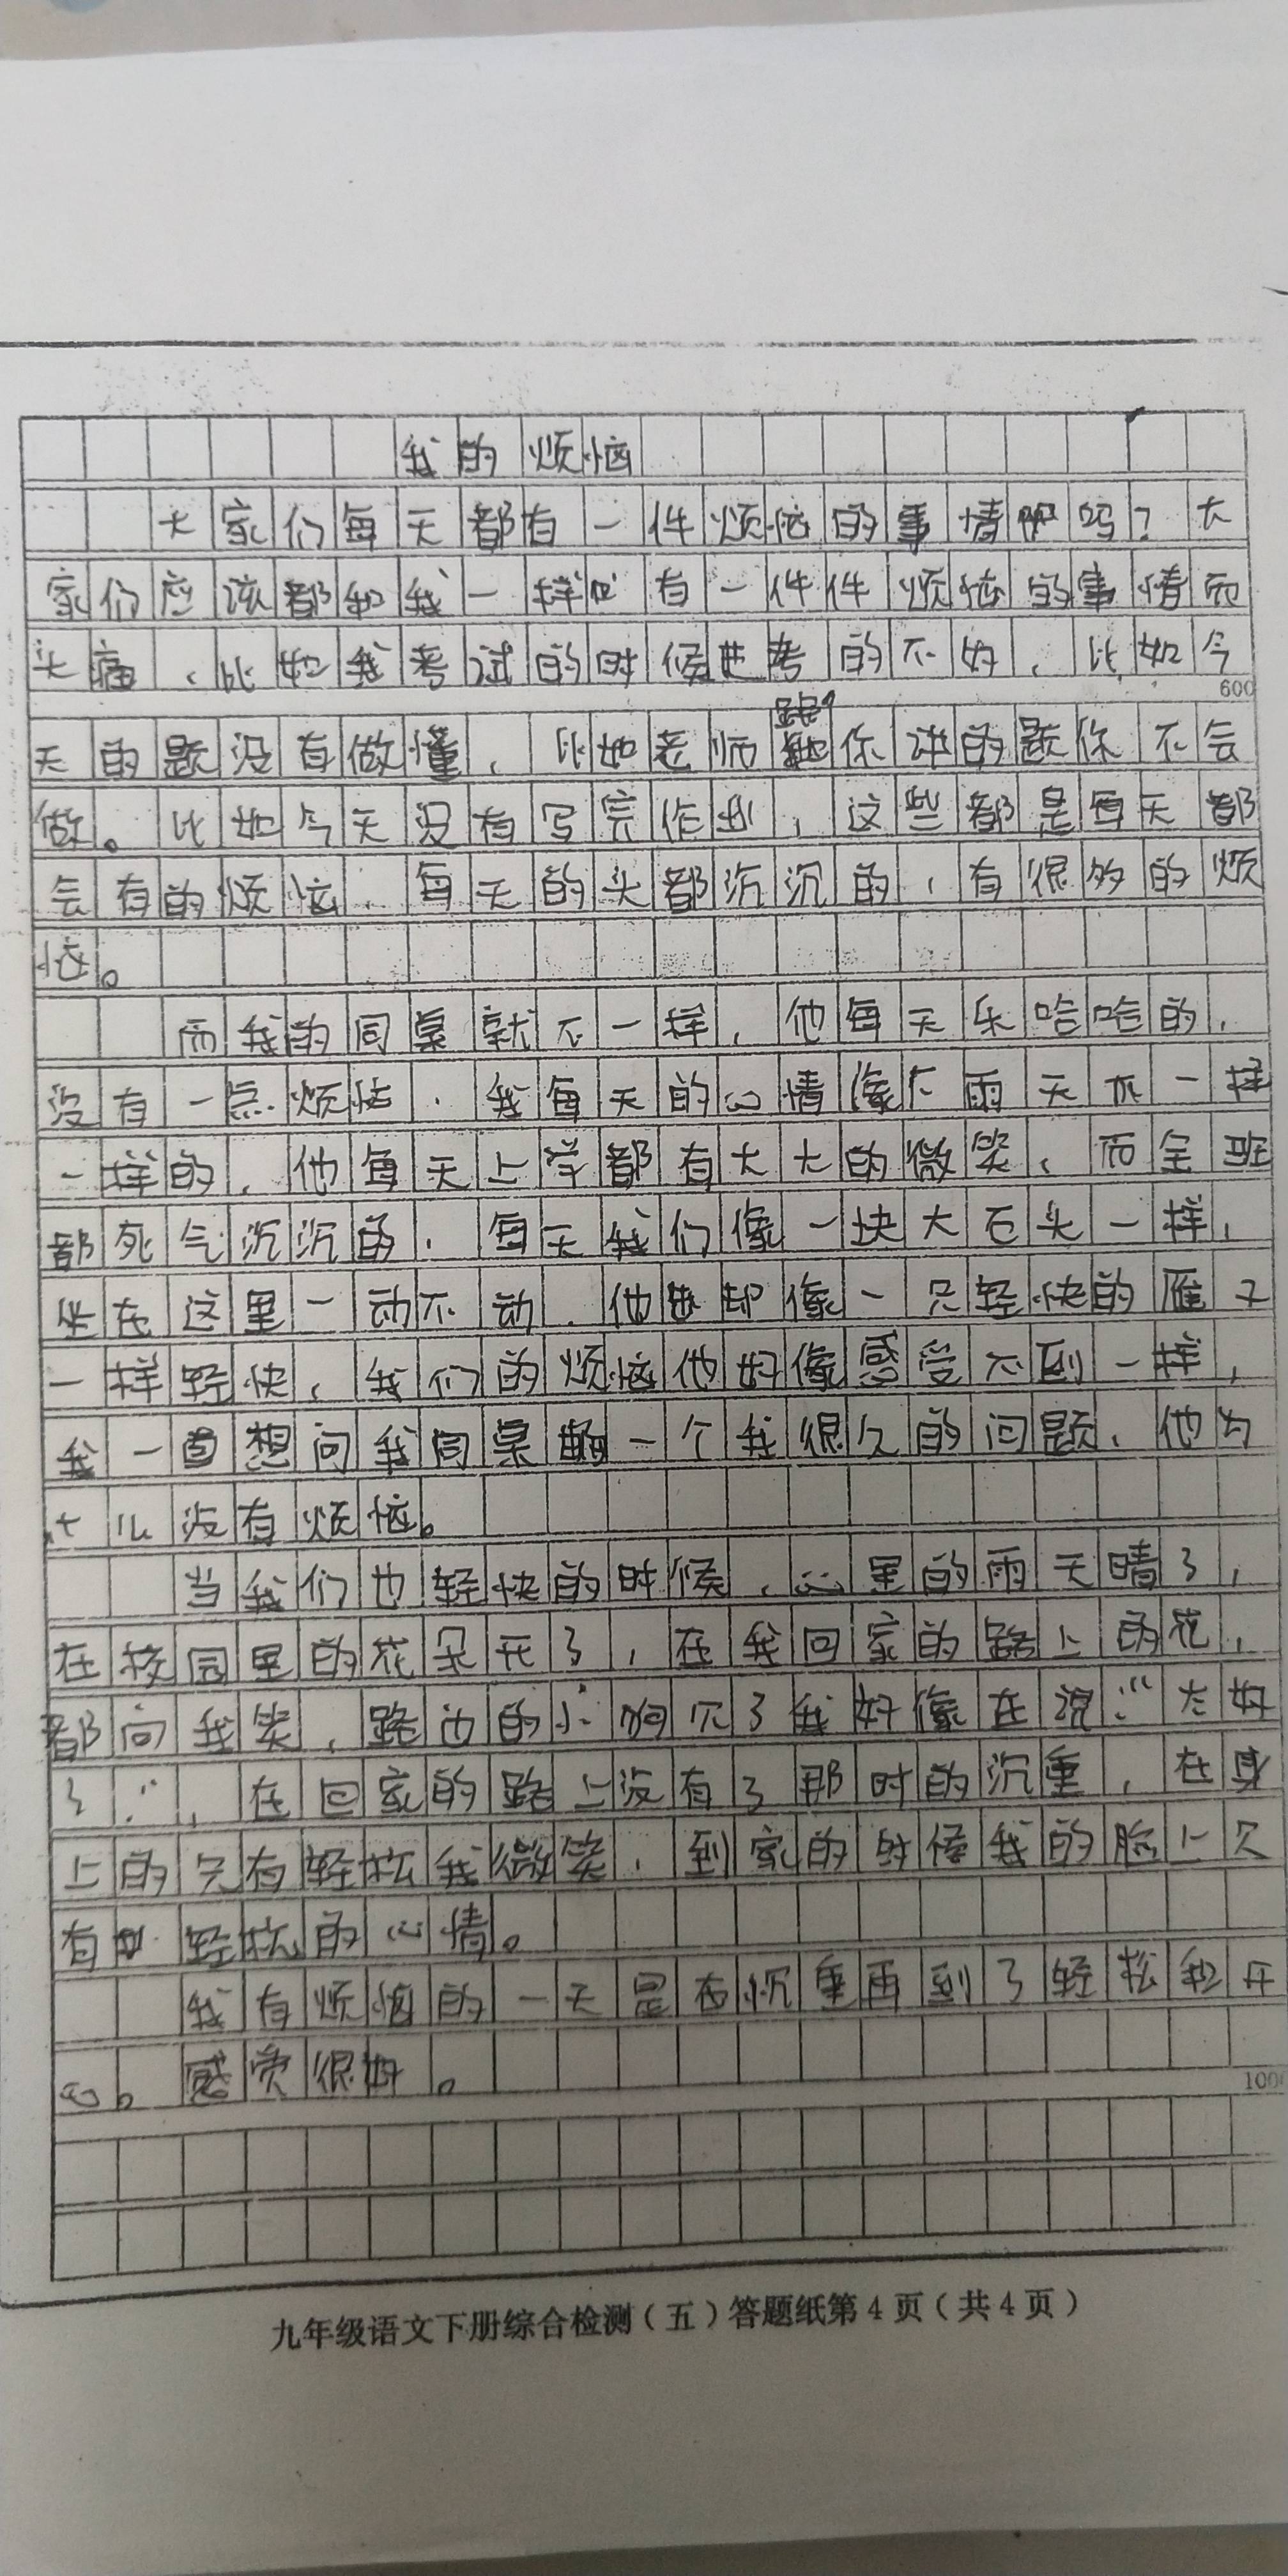 我的烦恼
大家们每天都有一件烦恼的事情吗？大
家们应该都和我一样吧有一件件烦恼的事情而
头痛、比如我考试的时候考的不好、比如今
600
天的题没有做懂、比如老师跟你讲的题你不会
做。比如今天没有写完作业，这些都是每天都
会有的烦恼、每天的头都沉沉的，有很多的烦
恼。
而我的同桌就不一样，他每天乐哈哈的，
没有一点烦恼．我每天的心情像下雨天一样
一样的，他每天上学都有大大的微笑、而全班
都死气沉沉的．每天我们像一块大石头一样，
坐在这里一动不动．他却像一只轻快的雁子
一样轻快、我们的烦恼他好像感受不到一样，
我一直想问我同桌一个我很久的问题、他为
什么没有烦恼。
当我们也轻快的时候、心里的雨天晴了，
在校园里的花朵开了，在我回家的路上的花，
都向我笑、路边的小狗见了我好像在说：“太好
了”，在回家的路上没有了那时的沉重，在身
上的只有轻松我微笑．到家的时候我的脸上只
有轻松的心情。
我有烦恼的一天是在沉重再到了轻松和开
心。感觉很好。
1000
九年级语文下册综合检测（五）答题纸第4页（共4页）